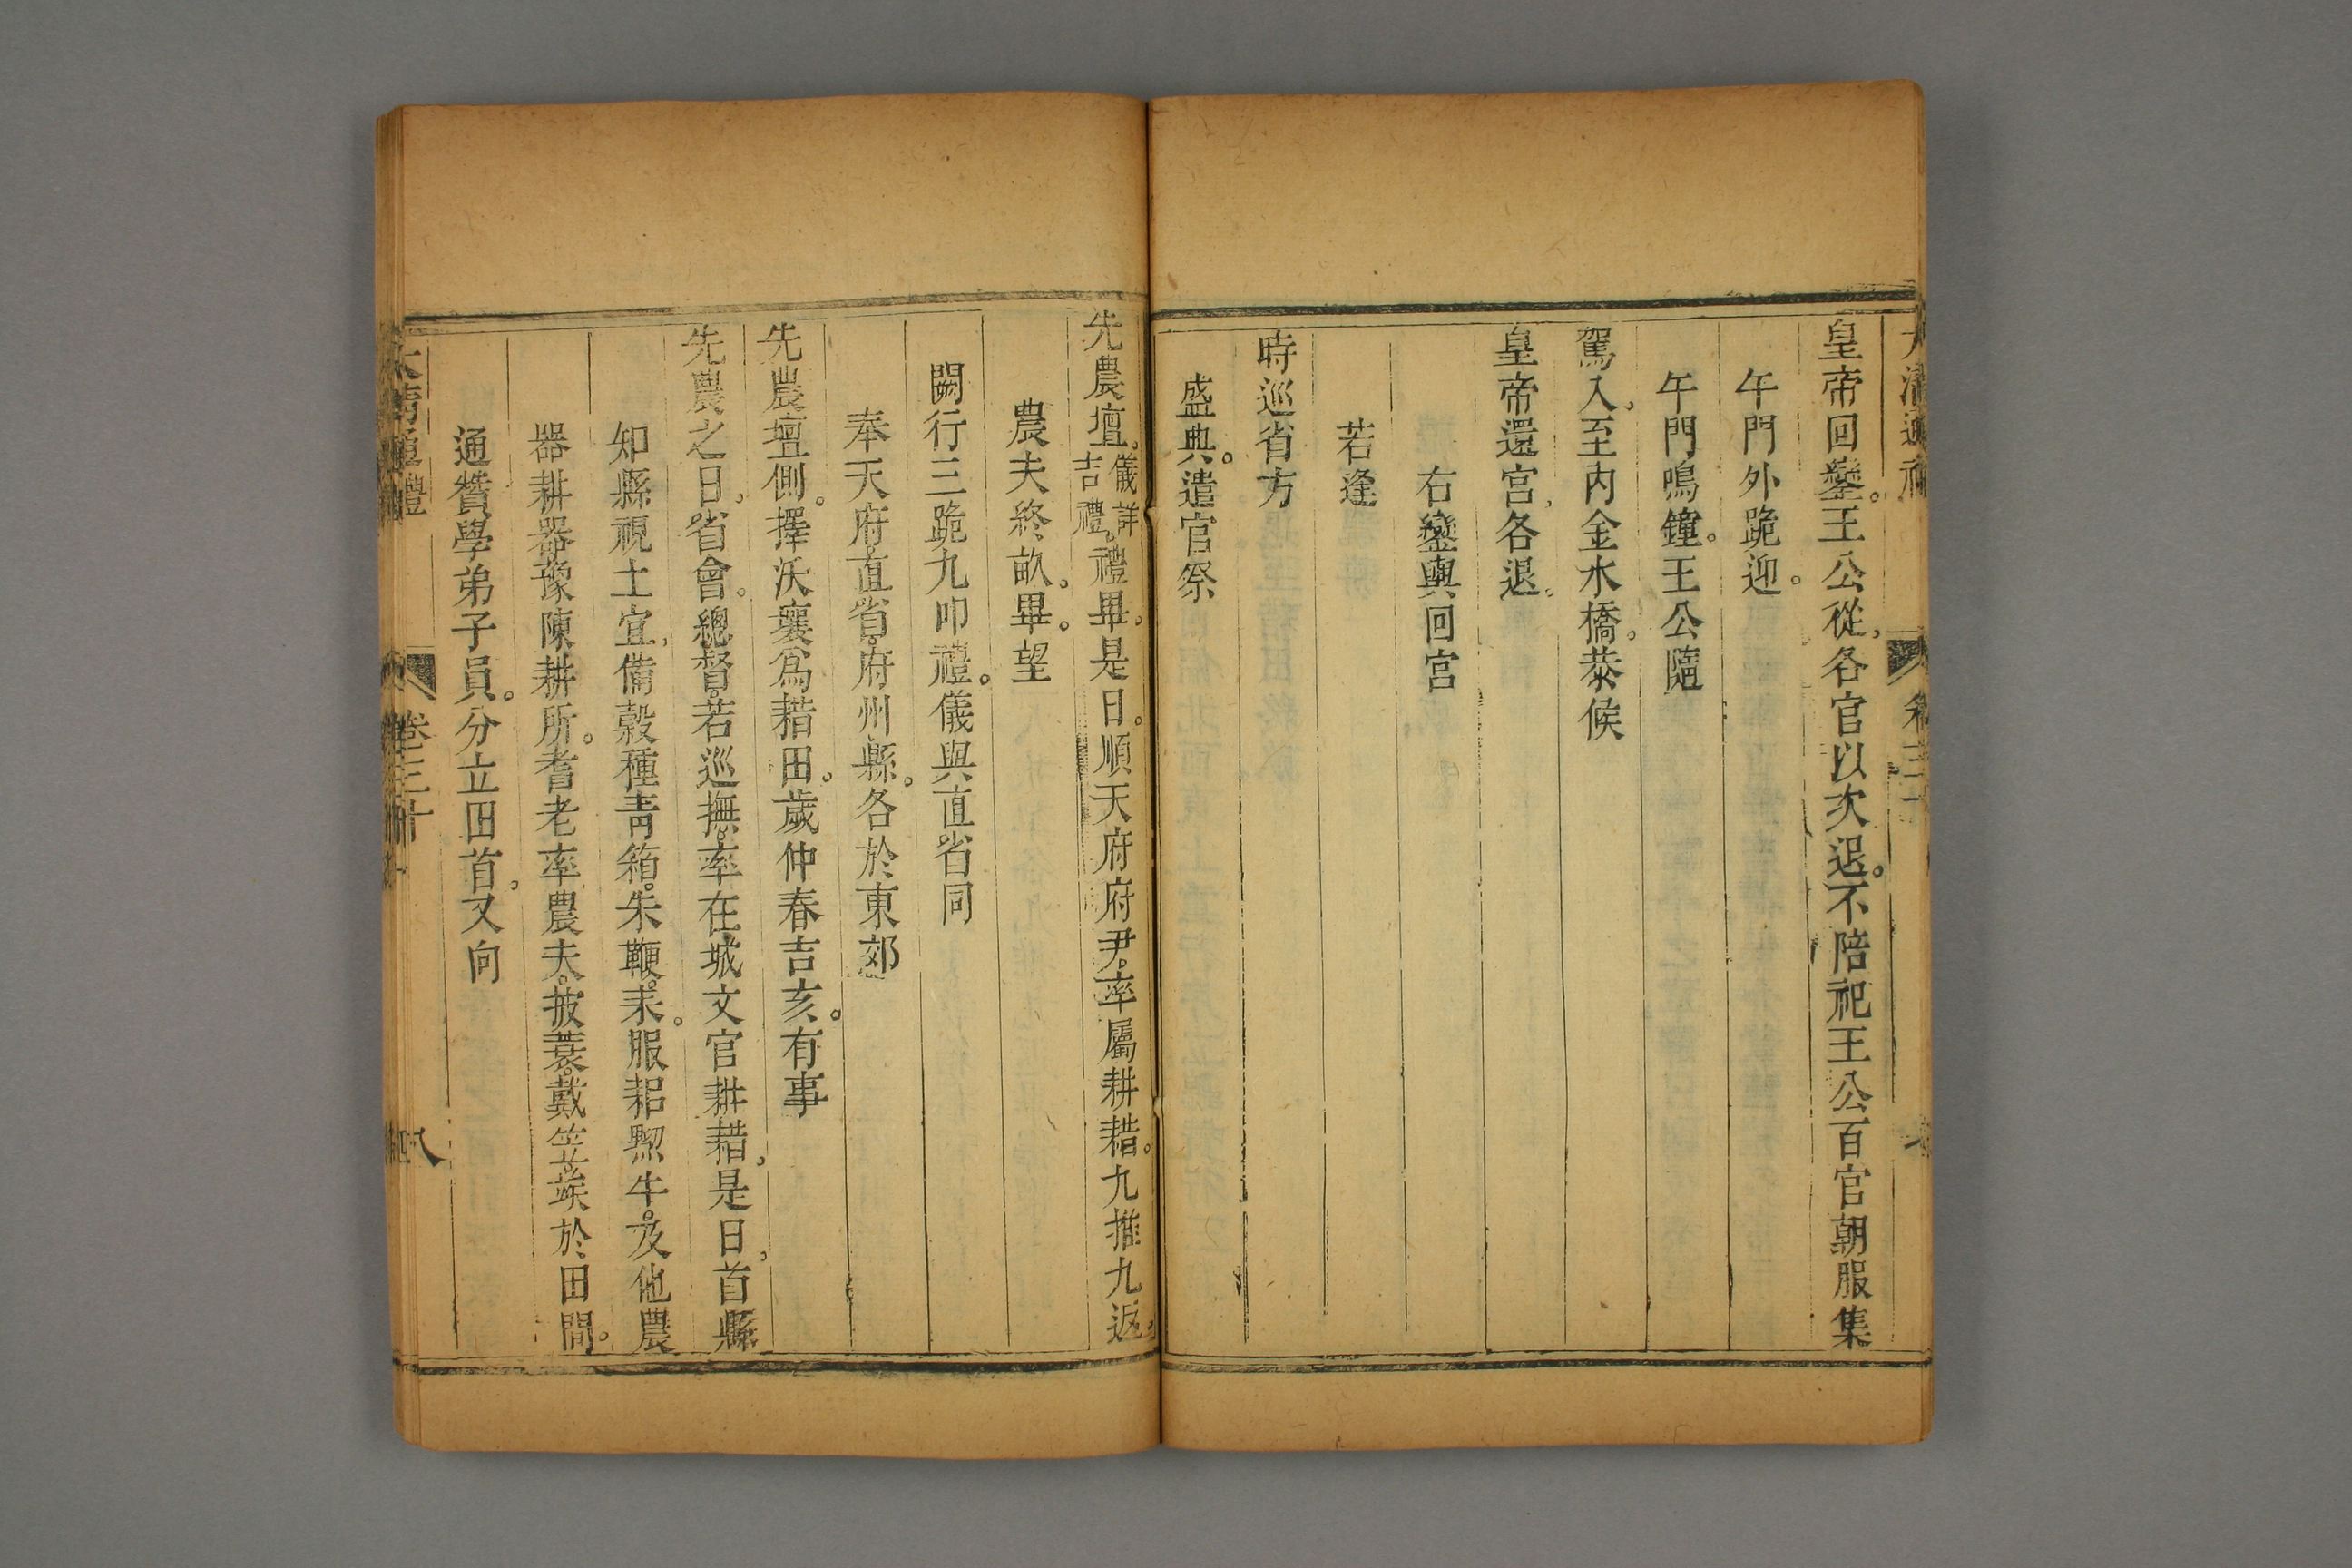 皇帝回鑾。王公從，各官以次退。不陪祀王公百官朝服集
午門外跪迎。
午門鳴鐘。王公隨
駕入，至內金水橋。恭候
皇帝還宮，各退。
右鑾輿回宮
若逢
時巡省方
盛典。遣官祭
先農壇。儀詳吉禮。禮畢。是日。順天府府尹。率屬耕耤。九推九返。
農夫終畝。畢。望
闕行三跪九叩禮。儀與直省同
奉天府直省。府州縣。各於東郊
先農壇側。擇沃壤爲耤田。歲仲春吉亥。有事
先農之日，省會。總督。若巡撫。率在城文官耕耤，是日，首縣
知縣視土宜，備穀種靑箱。朱鞭。耒。服耜黝牛。及他農
器耕器。豫陳耕所。耆老率農夫。披蓑。戴笠。竢於田間。
通贊學弟子員。分立田首。又向
大淸通禮 卷三十 八